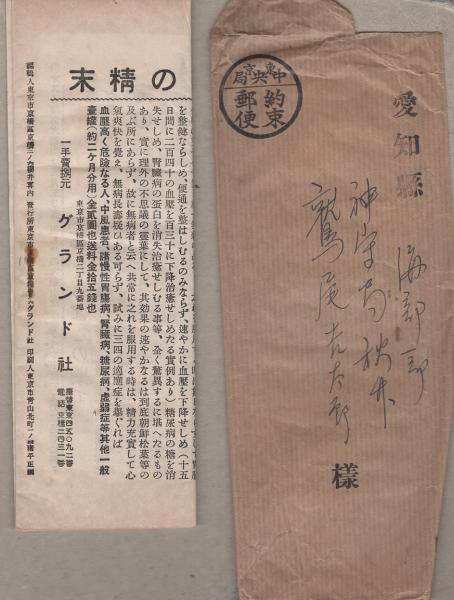 の精末
を整健ならしめ、便通を整はしむるのみならず、速やかに血壓を下降せしめ(十五
日間に二百四十の血壓を百三十に下降治癒せしめたる實例あり)糖尿病の糖を消
失せしめ、腎臓病の蛋白を消失治癒せしむる事等、全く驚異するに堪へたるもの
あり、實に理外の不思議の靈葉にして、其効果の速やかなるは到底朝鮮松葉等の
及ぶ所にあらず、故に無病者と云へ共常に之れを服用する時は、精力充實して心
氣爽快を覺え、無病長壽疑ひある可らず、試みに三四の適應症を擧ぐれば
血壓高く危險なる人、中風患者、諸慢性胃腸病、腎臓病、糖尿病、虚弱症等其他一般
壹罐(約二ケ月分用)金貳圓也送料金拾五錢也
東京市京橋區京橋二丁目九番地
一手賣捌元 グランド社
振替東京四五〇九二番
電話京橋二四三一番
發行所東京市京橋區京橋 グランド社 印刷人東京市青山北町
東京中央局
約束郵便
愛知縣
海部郡
神守局
鷲尾吉太郎
様